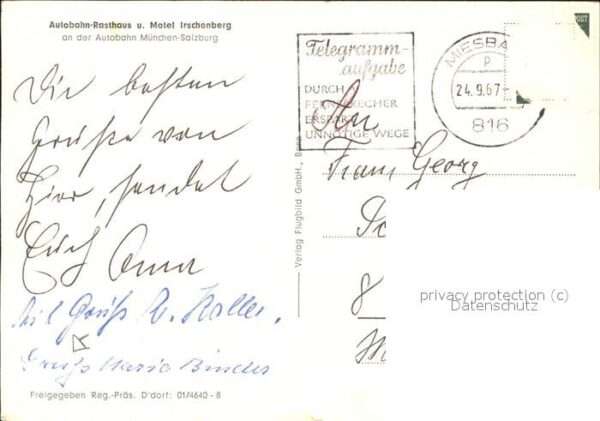 Autobahn-Rasthaus u. Motel Irschenberg
an der Autobahn München-Salzburg
Die besten
Grüße von
Hier, sendet
Euch Anna
Mit Gruß R. Haller.
Gruß Maria Binder
Freigegeben Reg.-Präs. D'dorf: 01/4640-8
Verlag Flugbild GmbH., Bonn
Telegramm-
aufgabe
DURCH
FERNSPRECHER
ERSPART
UNNÖTIGE WEGE
MIESBA
p
24.9.67-
816
POST
An
Franz Georg
8
privacy protection (c)
Datenschutz